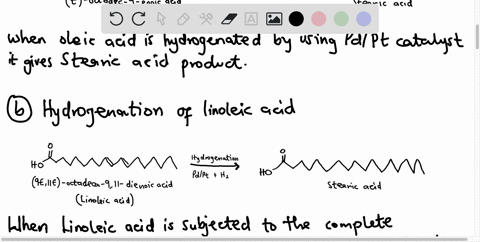 when oleic acid is hydrogenated by using Pd/Pt catalyst
it gives Stearic acid product.
(b) Hydrogenation of linoleic acid
O
HO
Hydrogenation
Pd/Pt + H₂
O
HO
(9E,11E)-octadeca-9,11-dienoic acid
(Linoleic acid)
Stearic acid
When Linoleic acid is subjected to the complete